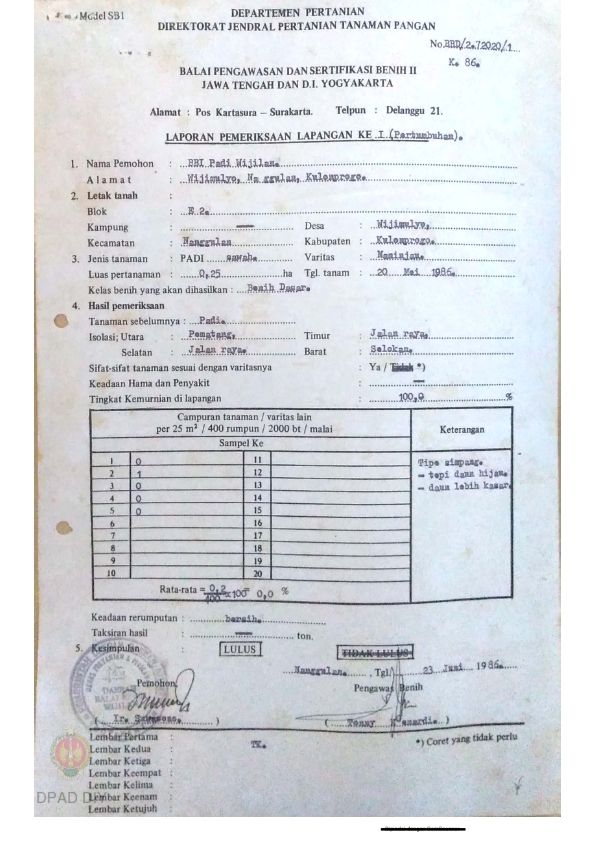 Model SB1
DEPARTEMEN PERTANIAN
DIREKTORAT JENDRAL PERTANIAN TANAMAN PANGAN
No. BBD/2.72020/1...
K. 86.
BALAI PENGAWASAN DAN SERTIFIKASI BENIH II
JAWA TENGAH DAN D.I. YOGYAKARTA
Alamat : Pos Kartasura – Surakarta. Telpun : Delanggu 21.
LAPORAN PEMERIKSAAN LAPANGAN KE I (Pertumbuhan).
1. Nama Pemohon : BBI Padi Wijilan.
Alamat : Wijimulyo, Na ggulan, Kulonprogo.
2. Letak tanah :
Blok : E 2.
Kampung : — Desa : Wijimulyo,
Kecamatan : Nanggulan Kabupaten : Kulonprogo.
3. Jenis tanaman : PADI sawah. Varitas : Maninjau.
Luas pertanaman : 0,25 ha Tgl. tanam : 20 Mei 1986.
Kelas benih yang akan dihasilkan : Benih Dasar.
4. Hasil pemeriksaan
Tanaman sebelumnya : Padi.
Isolasi; Utara : Pematang, Timur : Jalan raya.
Selatan : Jalan raya. Barat : Selokan.
Sifat-sifat tanaman sesuai dengan varitasnya : Ya / Tidak *)
Keadaan Hama dan Penyakit : —
Tingkat Kemurnian di lapangan : 100,0 %
Campuran tanaman / varitas lain
per 25 m² / 400 rumpun / 2000 bt / malai
Keterangan
Sampel Ke
1 0 11
2 1 12
3 0 13
4 0 14
5 0 15
6 16
7 17
8 18
9 19
10 20
Tipe simpang.
– tepi daun hijau.
– daun lebih kasar.
Rata-rata = 0,2/400 x 100 = 0,0 %
Keadaan rerumputan : bersih.
Taksiran hasil : — ton.
5. Kesimpulan : LULUS TIDAK LULUS
Nanggulan, Tgl. 23 Juni 1986.
Pemohon, Pengawas Benih
( Ir. )
*) Coret yang tidak perlu
Lembar Pertama :
Lembar Kedua :
Lembar Ketiga :
Lembar Keempat :
Lembar Kelima :
Lembar Keenam :
Lembar Ketujuh :
IX.
DPAD DIY